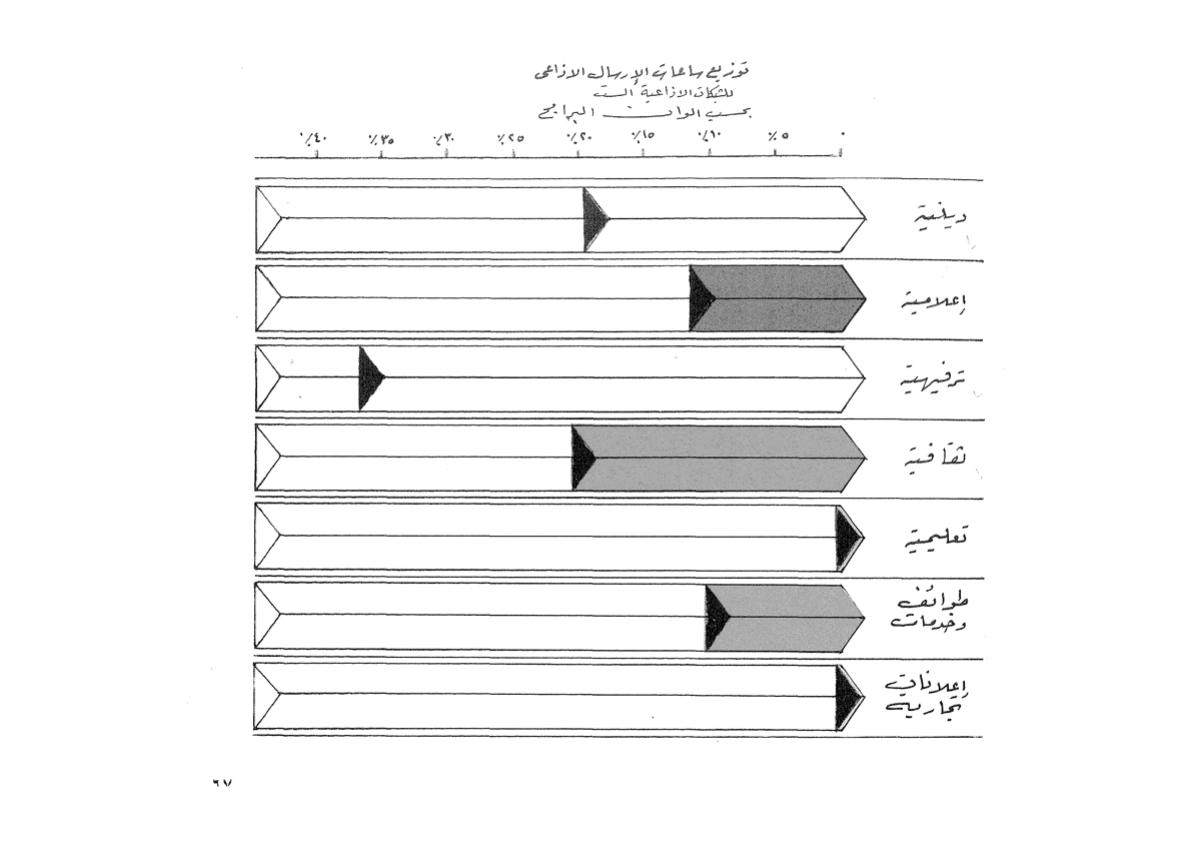 توزيع ساعات الإرسال الاذاعى
للشبكات الاذاعية الست
بحسب الوان البرامج
٠ ٪٥ ٪١٠ ٪١٥ ٪٢٠ ٪٢٥ ٪٣٠ ٪٣٥ ٪٤٠
دينية
إعلامية
ترفيهية
ثقافية
تعليمية
طوائف
وخدمات
إعلانات
تجارية
٦٧